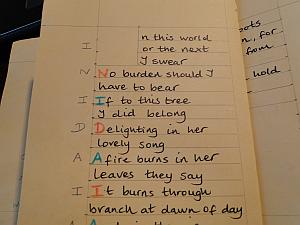 I n this world
or the next
I swear
N No burden should I
have to bear
I If to this tree
I did belong
D Delighting in her
lovely song
A A fire burns in her
leaves they say
I It burns through
branch at dawn of day
for
from
hold